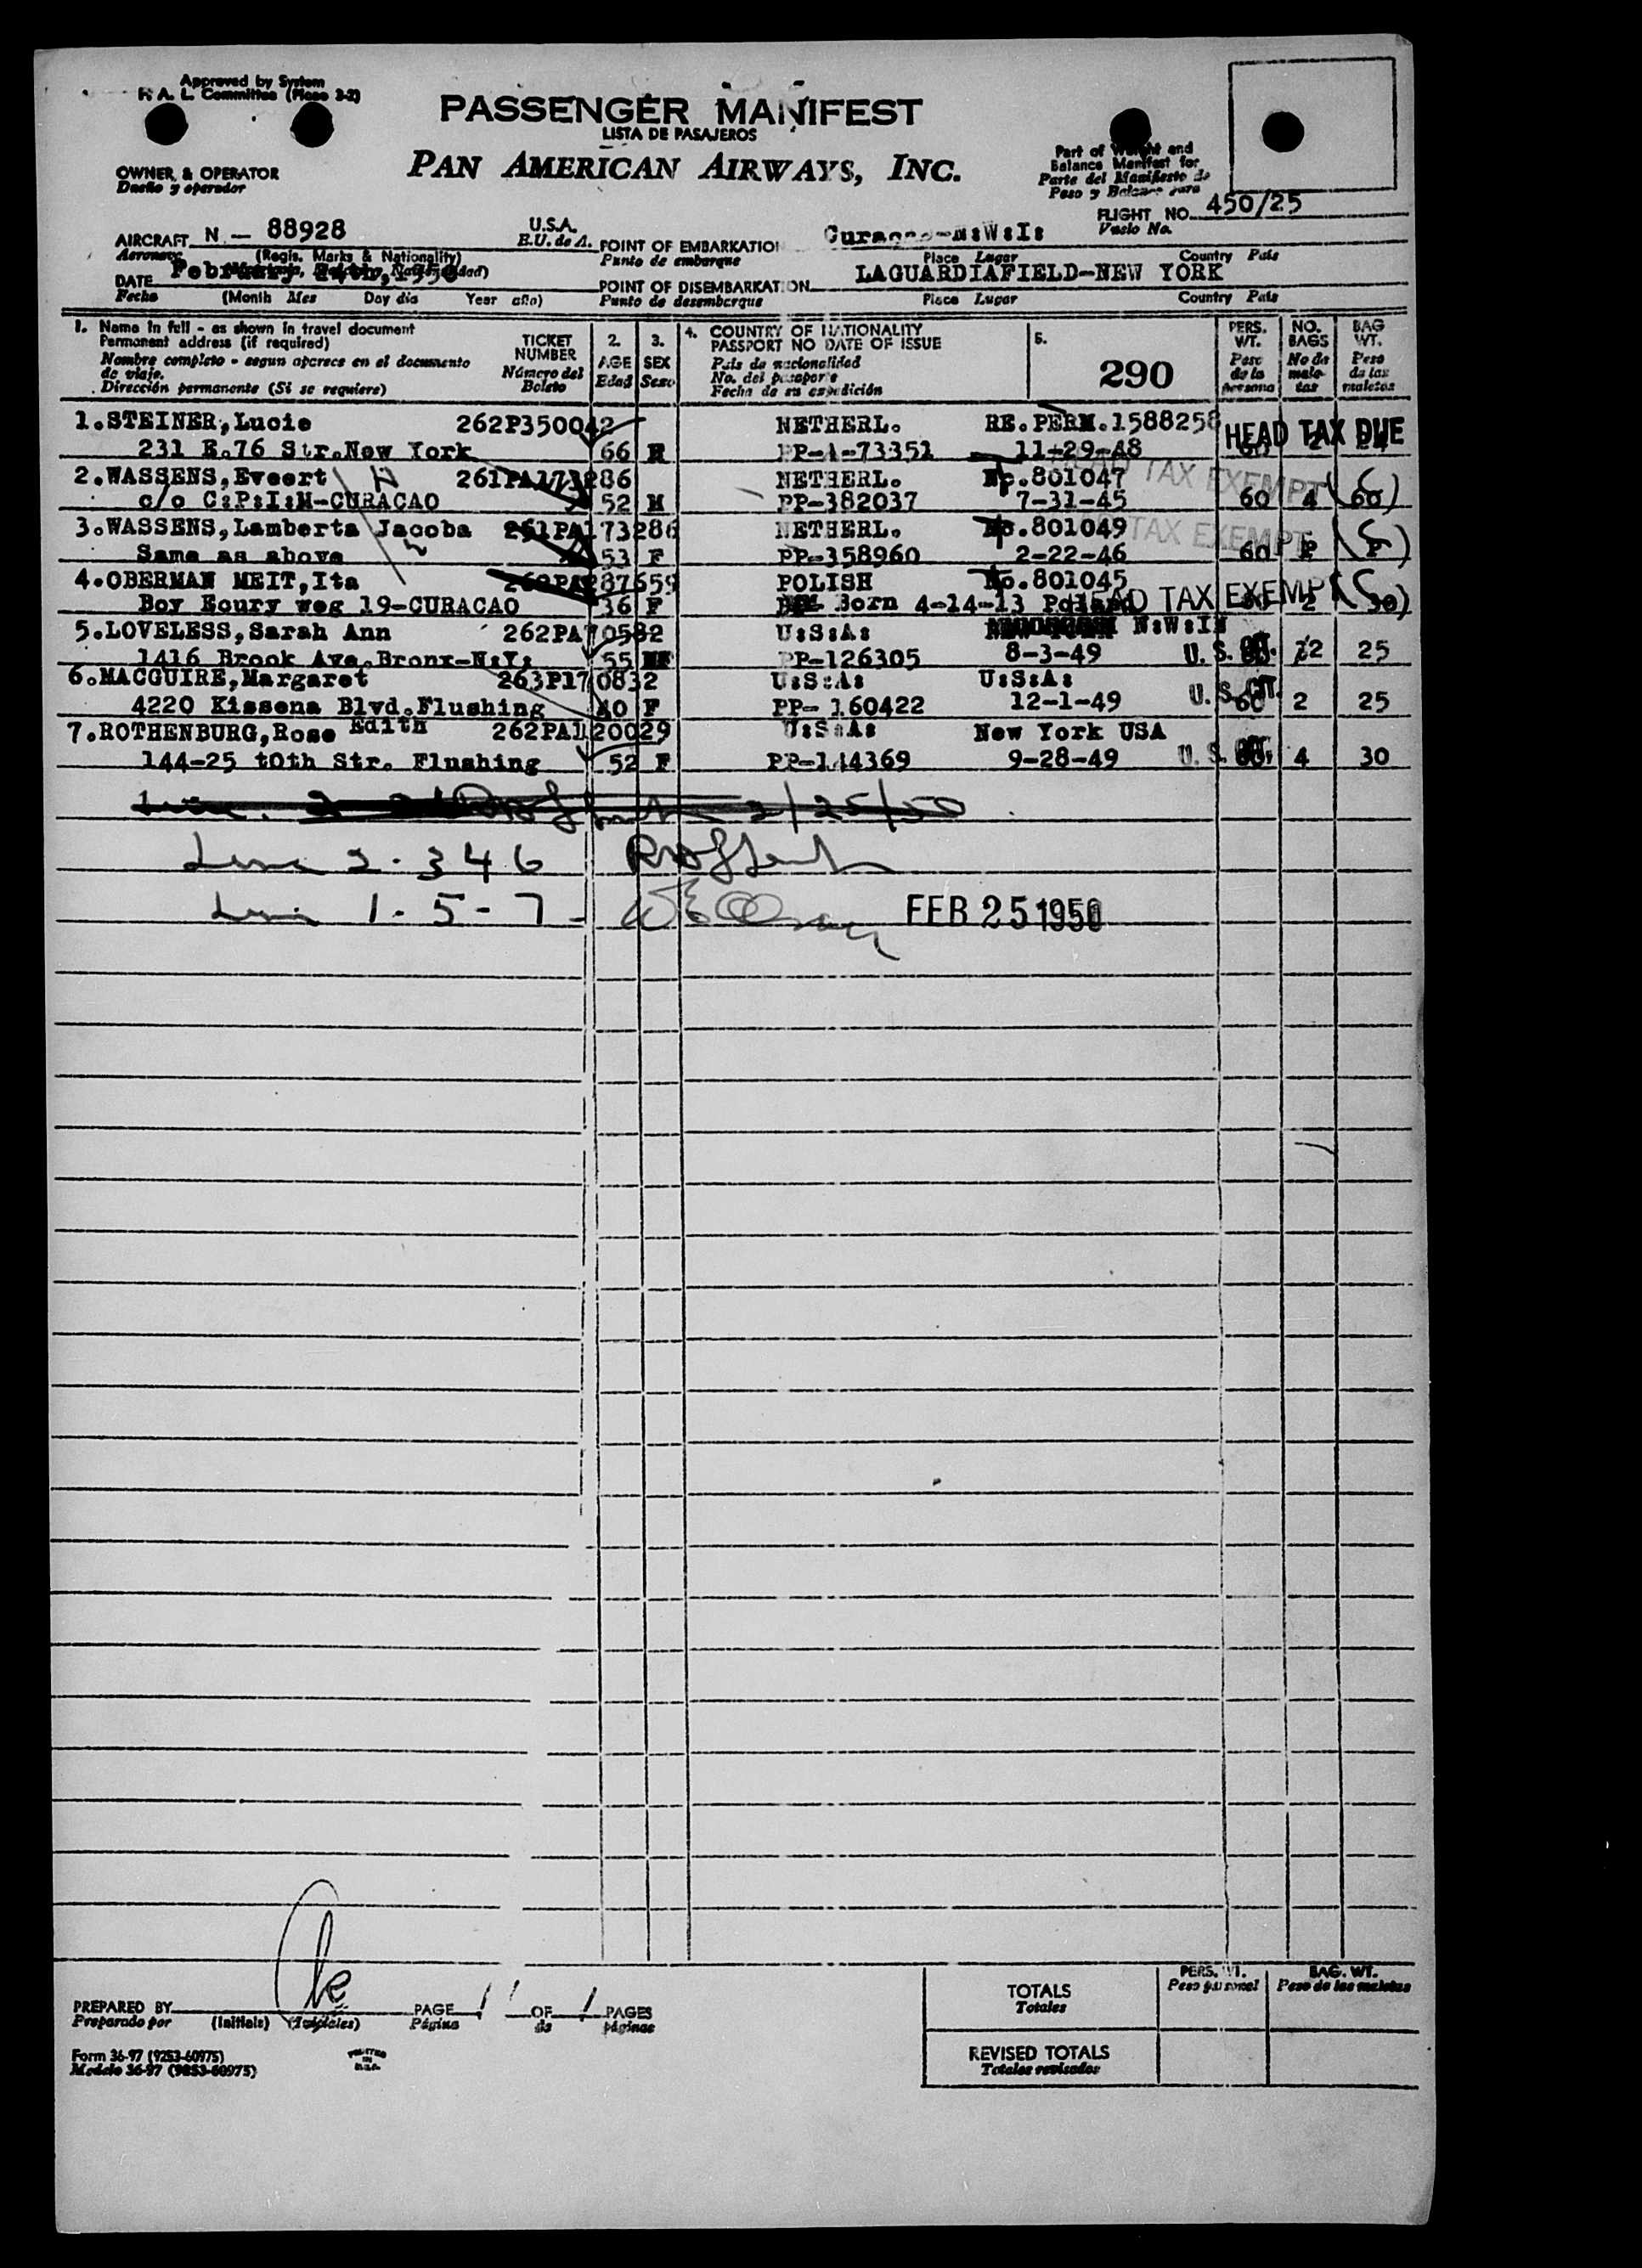 Approved by System
P. A. L. Committee (Phase 3-2)
PASSENGER MANIFEST
LISTA DE PASAJEROS
PAN AMERICAN AIRWAYS, INC.
OWNER & OPERATOR
Dueño y operador
Part of Weight and
Balance Manifest for
Parte del Manifiesto de
Peso y Balance para
FLIGHT NO. 450/25
Vuelo No.
AIRCRAFT N - 88928 U.S.A.
Aeronave (Regis. Marks & Nationality) E.U. de A.
POINT OF EMBARKATION Curacao-N:W:I:
Punto de embarque Place Lugar Country País
DATE February 24th, 1950
Fecha (Month Mes Day día Year año)
POINT OF DISEMBARKATION LAGUARDIAFIELD-NEW YORK
Punto de desembarque Place Lugar Country País
1. Name in full - as shown in travel document
Permanent address (if required)
Nombre completo - segun aparece en el documento
de viaje.
Dirección permanente (Si se requiere)
TICKET
NUMBER
Número del
Boleto
2.
AGE
Edad
3.
SEX
Sexo
4. COUNTRY OF NATIONALITY
PASSPORT NO DATE OF ISSUE
País de nacionalidad
No. del pasaporte
Fecha de su expedición
5.
290
PERS.
WT.
Peso
de la
persona
NO.
BAGS
No de
male-
tas
BAG
WT.
Peso
de las
maletas
1.STEINER,Lucie 262P350042 NETHERL. RE.PERM.1588258 HEAD TAX DUE
231 E.76 Str.New York 66 PP-A-73351 11-29-48 60 2
2.WASSENS,Eveert 261PA173286 NETHERL. No.801047 HEAD TAX EXEMPT
c/o C:P:I:M-CURACAO 52 M PP-382037 7-31-45 60 4 (60)
3.WASSENS,Lamberta Jacoba 261PA173286 NETHERL. No.801049 HEAD TAX EXEMPT
Same as above 53 F PP-358960 2-22-46 60 P P
4.OBERMAN MEIT,Ita 262PA287659 POLISH No.801045 HEAD TAX EXEMPT
Boy Eoury weg 19-CURACAO 36 F Born 4-14-13 Poland 2 (30)
5.LOVELESS,Sarah Ann 262PA70582 U:S:A: N:W:I:
1416 Brook Ave.Bronx-N:Y: 55 F PP-126305 8-3-49 U. S. CIT. 2 25
6.MACGUIRE,Margaret 263P170832 U:S:A: U:S:A:
4220 Kissena Blvd.Flushing 40 F PP- 160422 12-1-49 U. S. CIT. 60 2 25
7.ROTHENBURG,Rose Edith 262PA120029 U:S:A: New York USA
144-25 t0th Str. Flushing 52 F PP-144369 9-28-49 U. S. CIT. 4 30
2/25/50
Line 2. 3 4 6
Line 1 - 5 - 7 FEB 25 1950
PREPARED BY
Preparado por (Initials) (Iniciales)
PAGE 1 OF 1 PAGES
Página de páginas
TOTALS
Totales
PERS. WT.
Peso personal
BAG. WT.
Peso de las maletas
REVISED TOTALS
Totales revisados
Form 36-97 (9253-60975)
Modelo 36-97 (9253-60975)
PRINTED
IN
U.S.A.